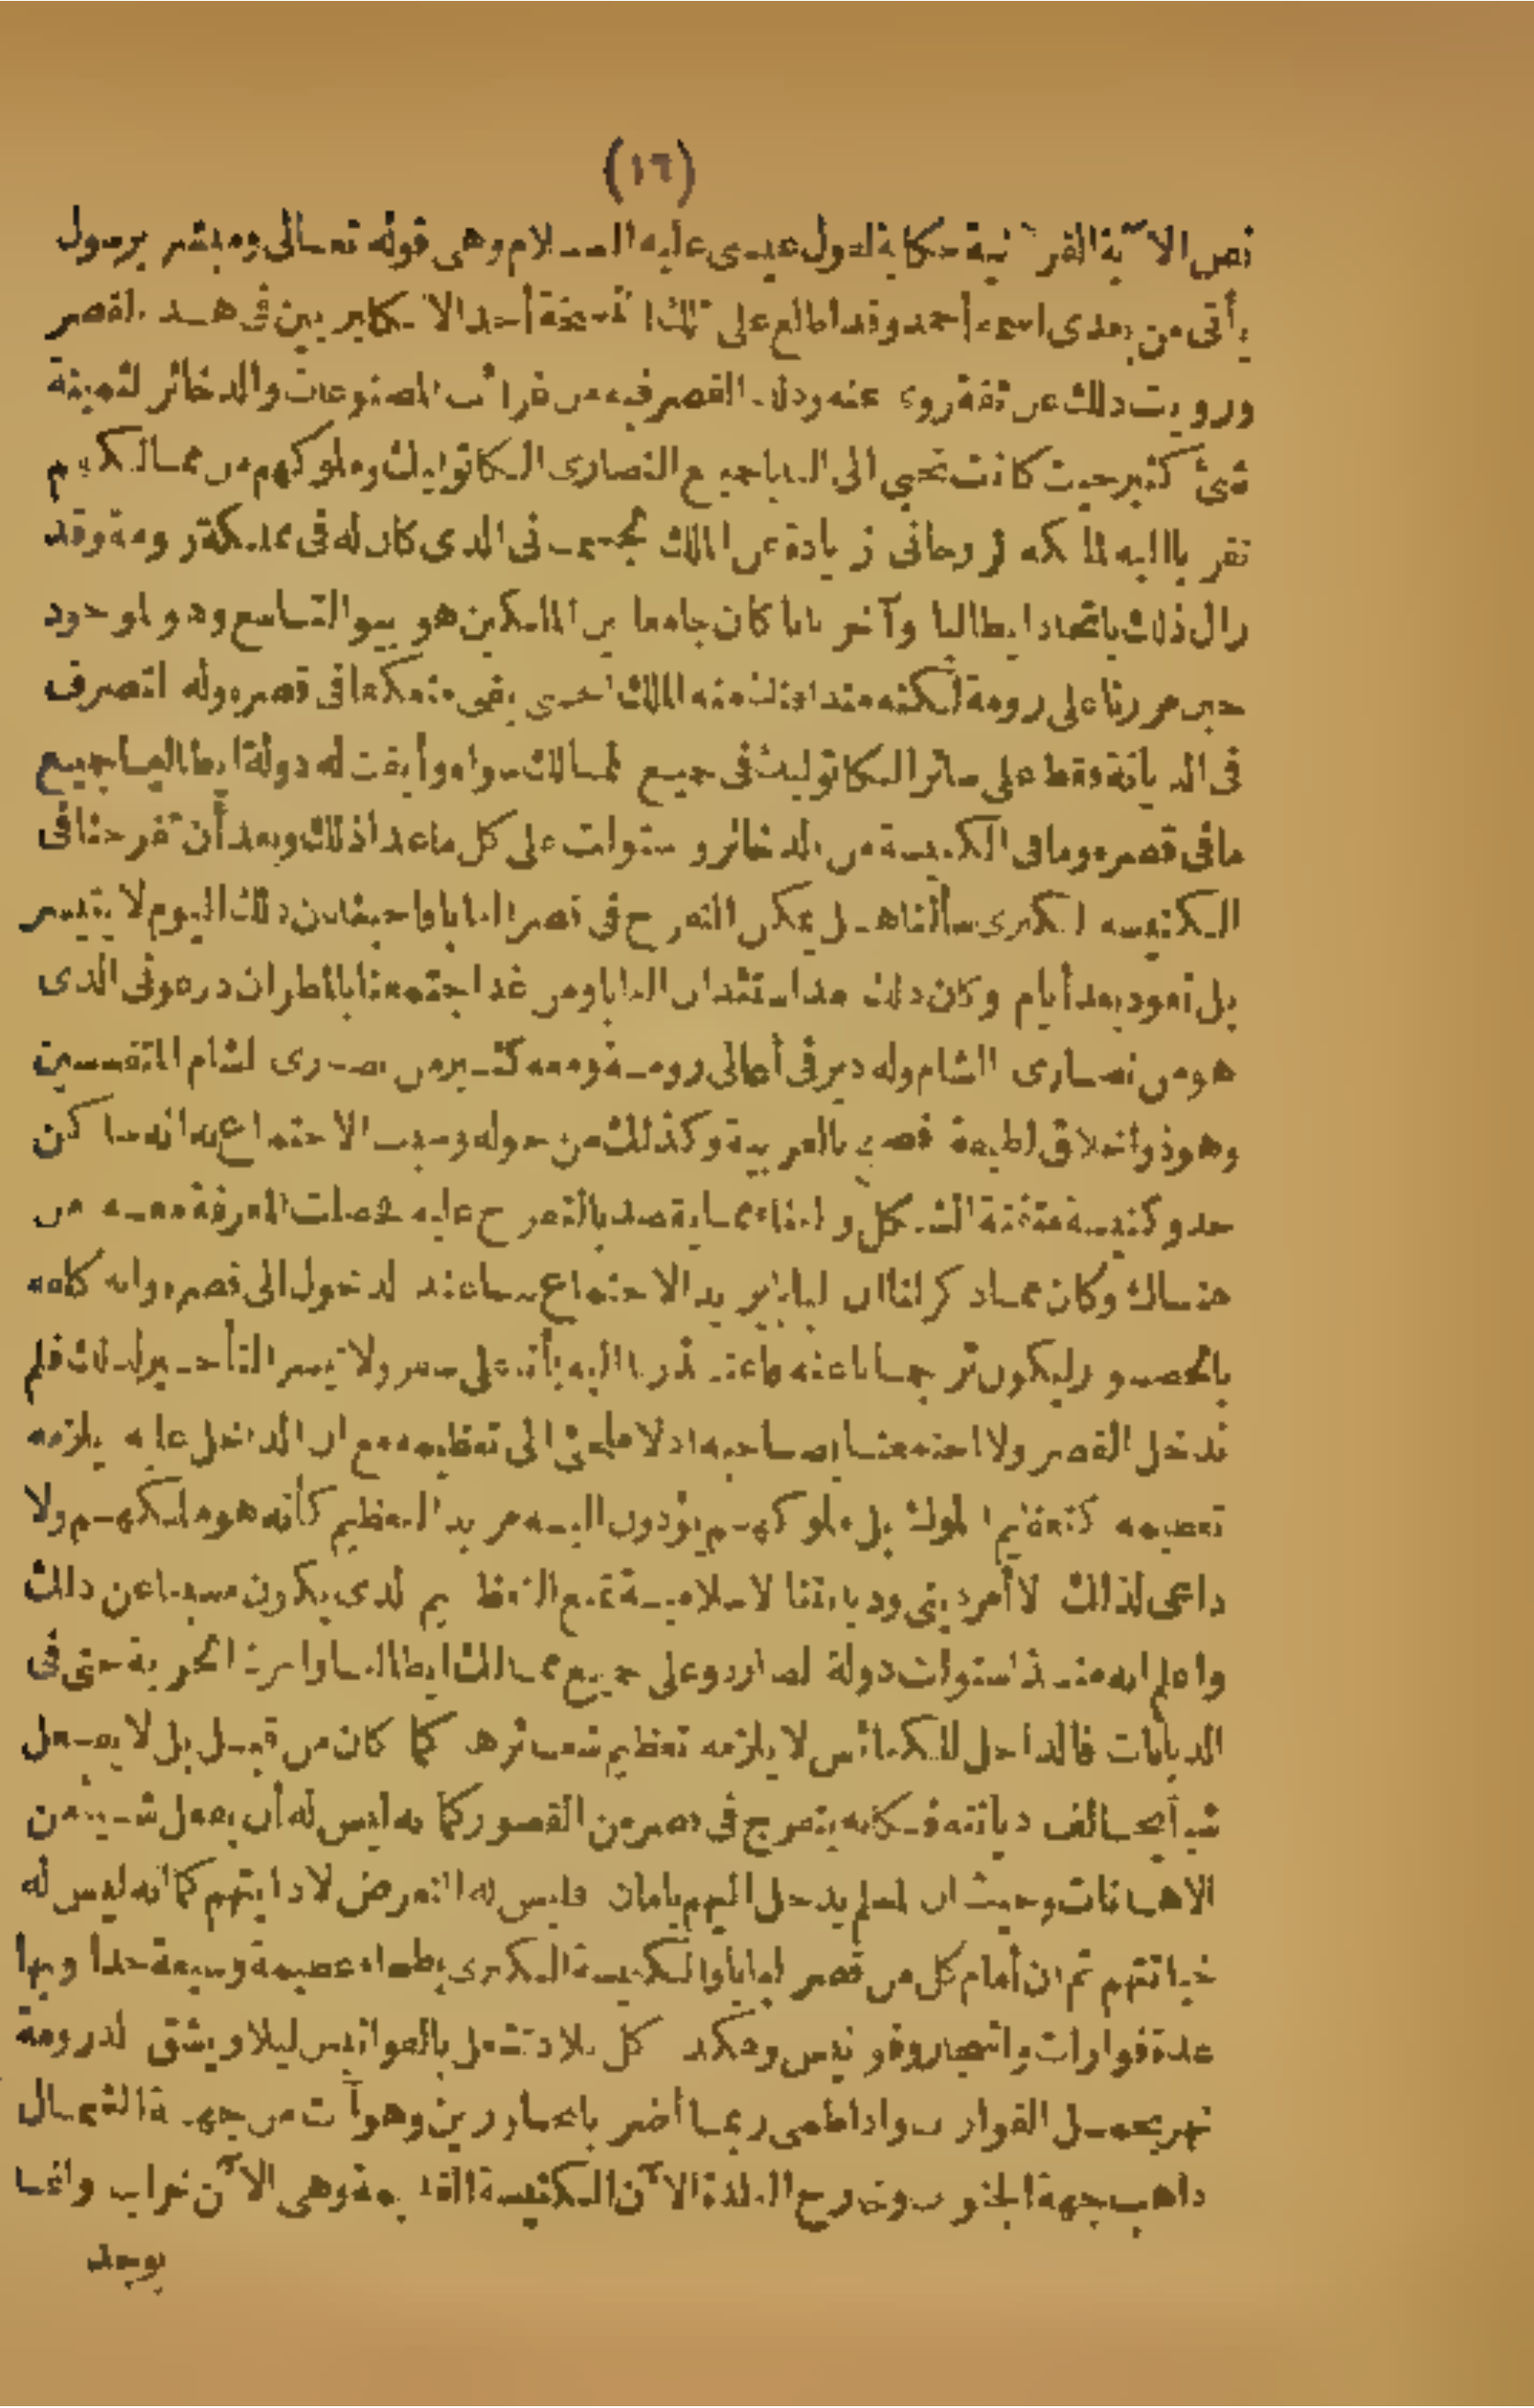 (١٦)
نص الآية القرآنية حكاية لقول عيسى عليه السلام وهى قوله تعالى ومبشر برسول
يأتى من بعدى اسمه أحمد وقد اطلع على تلك النسخة أحد الاكابر بين فى هذا القصر
ورويت ذلك عن ثقة روى عنه وذلك القصر فيه من غرائب المصنوعات والذخائر الثمينة
شئ كثير حيث كانت تجبى الى البابا جميع النصارى الكاثوليك وملوكهم من ممالكهم
تقربا اليه لملكه الروحانى زيادة عن الملك الجسمانى الذى كان له فى مملكة رومة وقد
زال ذلك باتحاد ايطاليا وآخر بابا كان جامعا بين الملكين هو بيو التاسع وهو الموجود
حين مررنا على رومة لكنه منذ افتك منه الملك بقى منعكفا فى قصره وله التصرف
فى الديانة فقط على سائر الكاثوليك فى جميع الممالك سواء وأبقت له دولة ايطاليا جميع
ما فى قصره وما فى الكنيسة من الذخائر واستولت على كل ما عدا ذلك وبعد أن تفرجنا فى
الكنيسة الكبرى سألنا هل يمكن التفرج فى قصر البابا فاجبنا بان ذلك اليوم لا يتيسر
بل نعود بعد أيام وكان ذلك بعد استئذان البابا ومن غد اجتمعنا بالمطران الذى
هو من نصارى الشام وله دير فى أعالى رومة ومعه كثير من نصارى الشام المتقسسين
وهو ذو اخلاق لطيفة فصيح بالعربية وكذلك من حوله وسبب الاجتماع به انه ساكن
حذو كنيسة متقنة الشكل والبناء مما يقصد بالتفرج عليه فحصلت المعرفة معه من
هنالك وكان مما ذكر لنا ان البابا يريد الاجتماع بنا عند الدخول الى قصره وانه كلمه
بالحضور وليكون ترجمانا عنه فاعتذرنا اليه بأنه على سفر ولا تيسر التأخير لذلك فلم
ندخل القصر ولا اجتمعنا بصاحبه اذ لا ملجئ الى تعظيمه مع ان الداخل عليه يلزمه
تعظيمه كتعظيم الملوك بل ملوكهم يؤدون اليه مزيد التعظيم كأنه هو ملكهم ولا
داعى لذلك لا أمر دينى وديانتنا الاسلامية تمنع التعظيم الذى يكون مسببا عن ذلك
واعلم انه منذ استولت دولة على جميع ممالك ايطاليا الحرية حتى فى
الديانات فالداخل للكنائس لا يلزمه تعظيم شعائرها كما كان من قبل بل لا يفعل
شيأ يخالف ديانته فكانه يتفرج فى قصر من القصور كما انه ليس له أن يفعل شيئا من
الاهانات وحيث ان المسلم يدخل اليهم بامان فليس له التعرض لاذايتهم كما انه ليس له
خيانتهم ثم ان أمام كل من قصر البابا والكنيسة الكبرى بطحاء عظيمة وسيعة جدا وبها
عدة فوارات واشجار وفوانيس وهكذا كل البلاد تشعل بالفوانيس ليلا ويشق بلد رومة
نهر يحمل القوارب واذا طمى ربما أضر بالمجاورين وهو آت من جهة الشمال
ذاهب جهة الجنوب وخارج البلدة الآن الكنيسة القديمة وهى الآن خراب وانما
يوجد